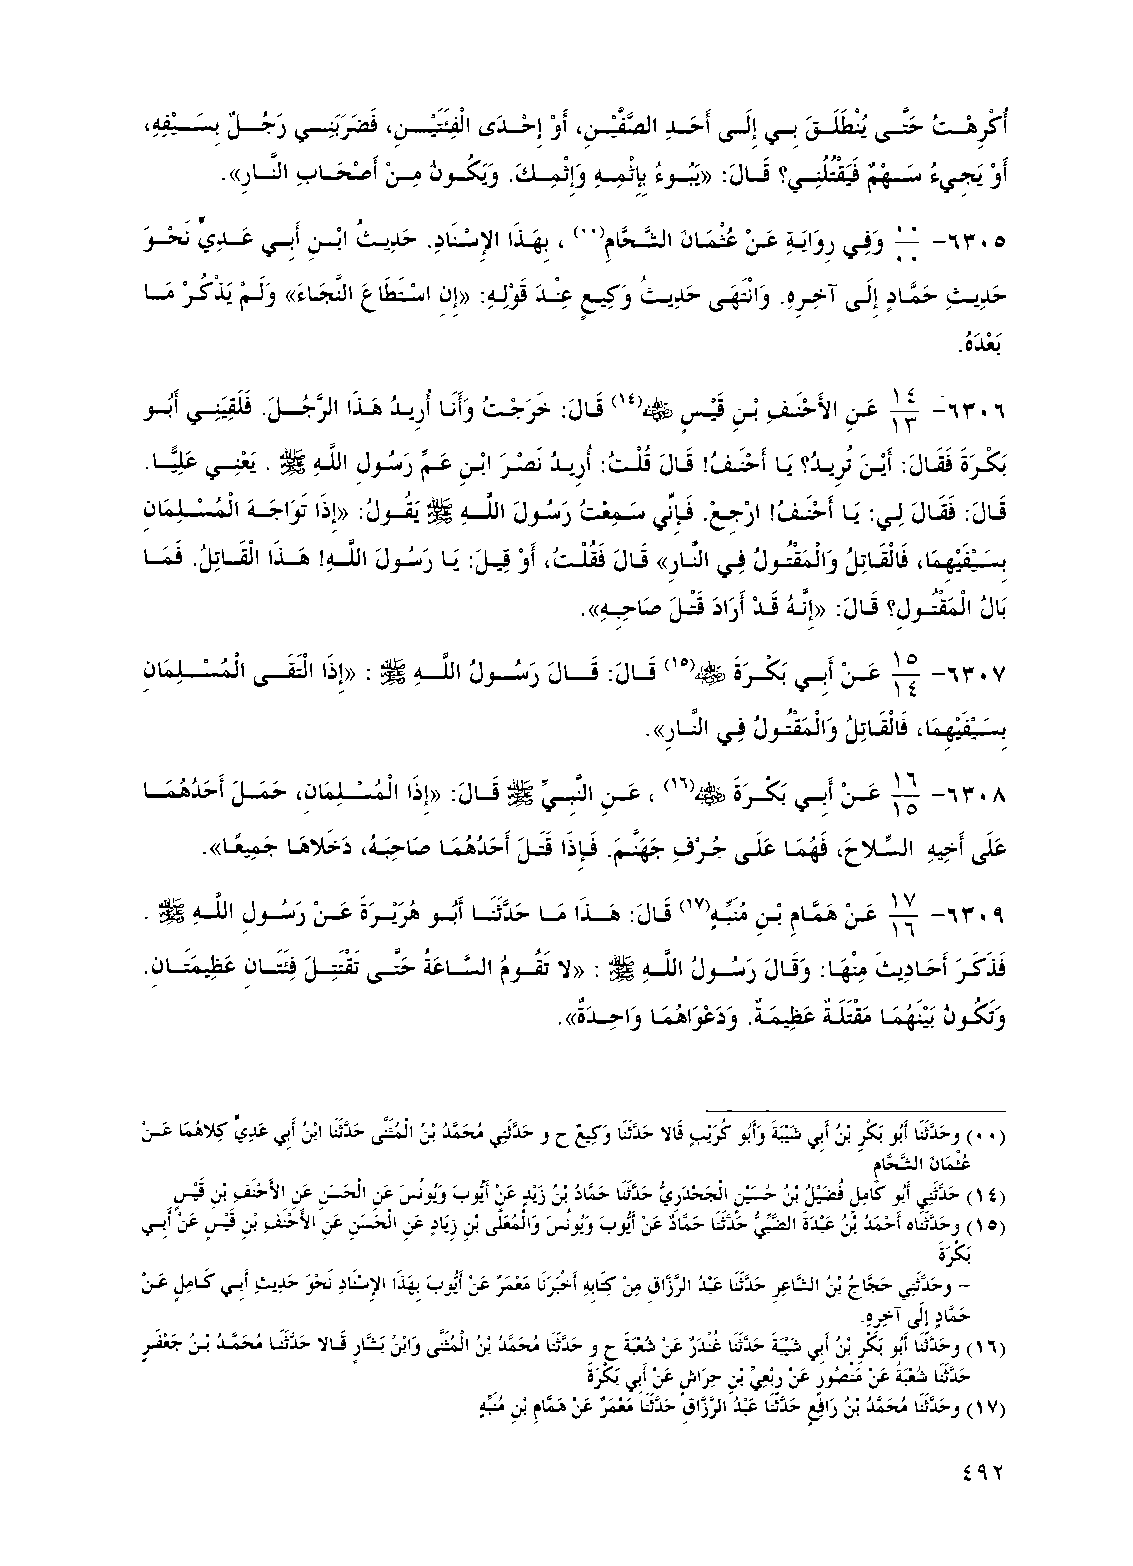 أُكْرِهْتُ حَتَّى يُنْطَلَقَ بِي إِلَى أَحَدِ الصَّفَّيْنِ، أَوْ إِحْدَى الْفِئَتَيْنِ، فَضَرَبَنِي رَجُلٌ بِسَيْفِهِ،
أَوْ يَجِيءُ سَهْمٌ فَيَقْتُلُنِي؟ قَالَ: «يَبُوءُ بِإِثْمِهِ وَإِثْمِكَ. وَيَكُونُ مِنْ أَصْحَابِ النَّارِ».
٦٣٠٥- ٠٠/٠٠ وَفِي رِوَايَةٍ عَنْ عُثْمَانَ الشَّحَّامِ(٠٠) ، بِهَذَا الإِسْنَادِ. حَدِيثُ ابْنِ أَبِي عَدِيٍّ نَحْوَ
حَدِيثِ حَمَّادٍ إِلَى آخِرِهِ. وَانْتَهَى حَدِيثُ وَكِيعٍ عِنْدَ قَوْلِهِ: «إِنِ اسْتَطَاعَ النَّجَاءَ» وَلَمْ يَذْكُرْ مَا
بَعْدَهُ.
٦٣٠٦- ١٤/١٣ عَنِ الأَحْنَفِ بْنِ قَيْسٍ ﷺ(١٤) قَالَ: خَرَجْتُ وَأَنَا أُرِيدُ هَذَا الرَّجُلَ. فَلَقِيَنِي أَبُو
بَكْرَةَ فَقَالَ: أَيْنَ تُرِيدُ؟ يَا أَحْنَفُ! قَالَ قُلْتُ: أُرِيدُ نَصْرَ ابْنِ عَمِّ رَسُولِ اللَّهِ ﷺ . يَعْنِي عَلِيًّا.
قَالَ: فَقَالَ لِي: يَا أَحْنَفُ! ارْجِعْ. فَإِنِّي سَمِعْتُ رَسُولَ اللَّهِ ﷺ يَقُولُ: «إِذَا تَوَاجَهَ الْمُسْلِمَانِ
بِسَيْفَيْهِمَا، فَالْقَاتِلُ وَالْمَقْتُولُ فِي النَّارِ» قَالَ فَقُلْتُ، أَوْ قِيلَ: يَا رَسُولَ اللَّهِ! هَذَا الْقَاتِلُ. فَمَا
بَالُ الْمَقْتُولِ؟ قَالَ: «إِنَّهُ قَدْ أَرَادَ قَتْلَ صَاحِبِهِ».
٦٣٠٧- ١٥/١٤ عَنْ أَبِي بَكْرَةَ (١٥) قَالَ: قَالَ رَسُولُ اللَّهِ ﷺ : «إِذَا الْتَقَى الْمُسْلِمَانِ
بِسَيْفَيْهِمَا، فَالْقَاتِلُ وَالْمَقْتُولُ فِي النَّارِ».
٦٣٠٨- ١٦/١٥ عَنْ أَبِي بَكْرَةَ (١٦) ، عَنِ النَّبِيِّ ﷺ قَالَ: «إِذَا الْمُسْلِمَانِ، حَمَلَ أَحَدُهُمَا
عَلَى أَخِيهِ السِّلاحَ، فَهُمَا عَلَى جُرُفِ جَهَنَّمَ. فَإِذَا قَتَلَ أَحَدُهُمَا صَاحِبَهُ، دَخَلاهَا جَمِيعًا».
٦٣٠٩- ١٧/١٦ عَنْ هَمَّامِ بْنِ مُنَبِّهٍ(١٧) قَالَ: هَذَا مَا حَدَّثَنَا أَبُو هُرَيْرَةَ عَنْ رَسُولِ اللَّهِ ﷺ .
فَذَكَرَ أَحَادِيثَ مِنْهَا: وَقَالَ رَسُولُ اللَّهِ ﷺ : «لا تَقُومُ السَّاعَةُ حَتَّى تَقْتَتِلَ فِئَتَانِ عَظِيمَتَانِ.
وَتَكُونُ بَيْنَهُمَا مَقْتَلَةٌ عَظِيمَةٌ. وَدَعْوَاهُمَا وَاحِدَةٌ».
(٠٠) وحَدَّثَنَا أَبُو بَكْرِ بْنُ أَبِي شَيْبَةَ وَأَبُو كُرَيْبٍ قَالا حَدَّثَنَا وَكِيعٌ ح و حَدَّثَنِي مُحَمَّدُ بْنُ الْمُثَنَّى حَدَّثَنَا ابْنُ أَبِي عَدِيٍّ كِلاهُمَا عَنْ
عُثْمَانَ الشَّحَّامِ
(١٤) حَدَّثَنِي أَبُو كَامِلٍ فُضَيْلُ بْنُ حُسَيْنٍ الْجَحْدَرِيُّ حَدَّثَنَا حَمَّادُ بْنُ زَيْدٍ عَنْ أَيُّوبَ وَيُونُسَ عَنِ الْحَسَنِ عَنِ الأَحْنَفِ بْنِ قَيْسٍ
(١٥) وحَدَّثَنَاه أَحْمَدُ بْنُ عَبْدَةَ الضَّبِّيُّ حَدَّثَنَا حَمَّادٌ عَنْ أَيُّوبَ وَيُونُسَ وَالْمُعَلَّى بْنِ زِيَادٍ عَنِ الْحَسَنِ عَنِ الأَحْنَفِ بْنِ قَيْسٍ عَنْ أَبِي
بَكْرَةَ
– وحَدَّثَنِي حَجَّاجُ بْنُ الشَّاعِرِ حَدَّثَنَا عَبْدُ الرَّزَّاقِ مِنْ كِتَابِهِ أَخْبَرَنَا مَعْمَرٌ عَنْ أَيُّوبَ بِهَذَا الإِسْنَادِ نَحْوَ حَدِيثِ أَبِي كَامِلٍ عَنْ
حَمَّادٍ إِلَى آخِرِهِ.
(١٦) وحَدَّثَنَا أَبُو بَكْرِ بْنُ أَبِي شَيْبَةَ حَدَّثَنَا غُنْدَرٌ عَنْ شُعْبَةَ ح و حَدَّثَنَا مُحَمَّدُ بْنُ الْمُثَنَّى وَابْنُ بَشَّارٍ قَالا حَدَّثَنَا مُحَمَّدُ بْنُ جَعْفَرٍ
حَدَّثَنَا شُعْبَةُ عَنْ مَنْصُورٍ عَنْ رِبْعِيِّ بْنِ حِرَاشٍ عَنْ أَبِي بَكْرَةَ
(١٧) وحَدَّثَنَا مُحَمَّدُ بْنُ رَافِعٍ حَدَّثَنَا عَبْدُ الرَّزَّاقِ حَدَّثَنَا مَعْمَرٌ عَنْ هَمَّامِ بْنِ مُنَبِّهٍ
٤٩٢